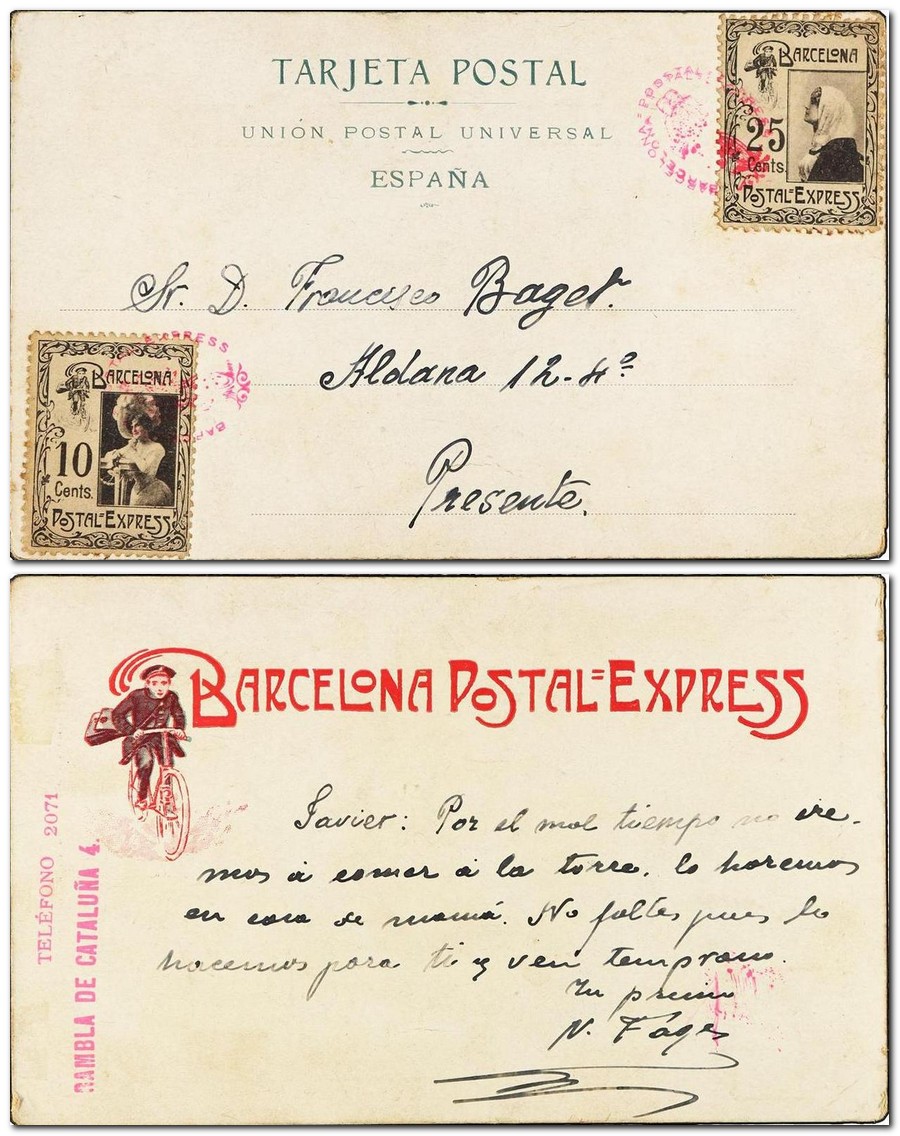 TARJETA POSTAL
UNIÓN POSTAL UNIVERSAL
ESPAÑA
BARCELONA
25
Cents
POSTAL-EXPRESS
Sr. D. Francisco Baget.
Aldana 12-4º
Presente.
BARCELONA
10
Cents.
POSTAL-EXPRESS
BARCELONA POSTAL=EXPRESS
TELÉFONO 2071
RAMBLA DE CATALUÑA 4.
Javier: Por el mal tiempo no ire-
mos á comer á la torre. lo haremos
en casa de mamá. No faltes pues lo
hacemos para ti y ven temprano.
Tu primo
N. Fáges